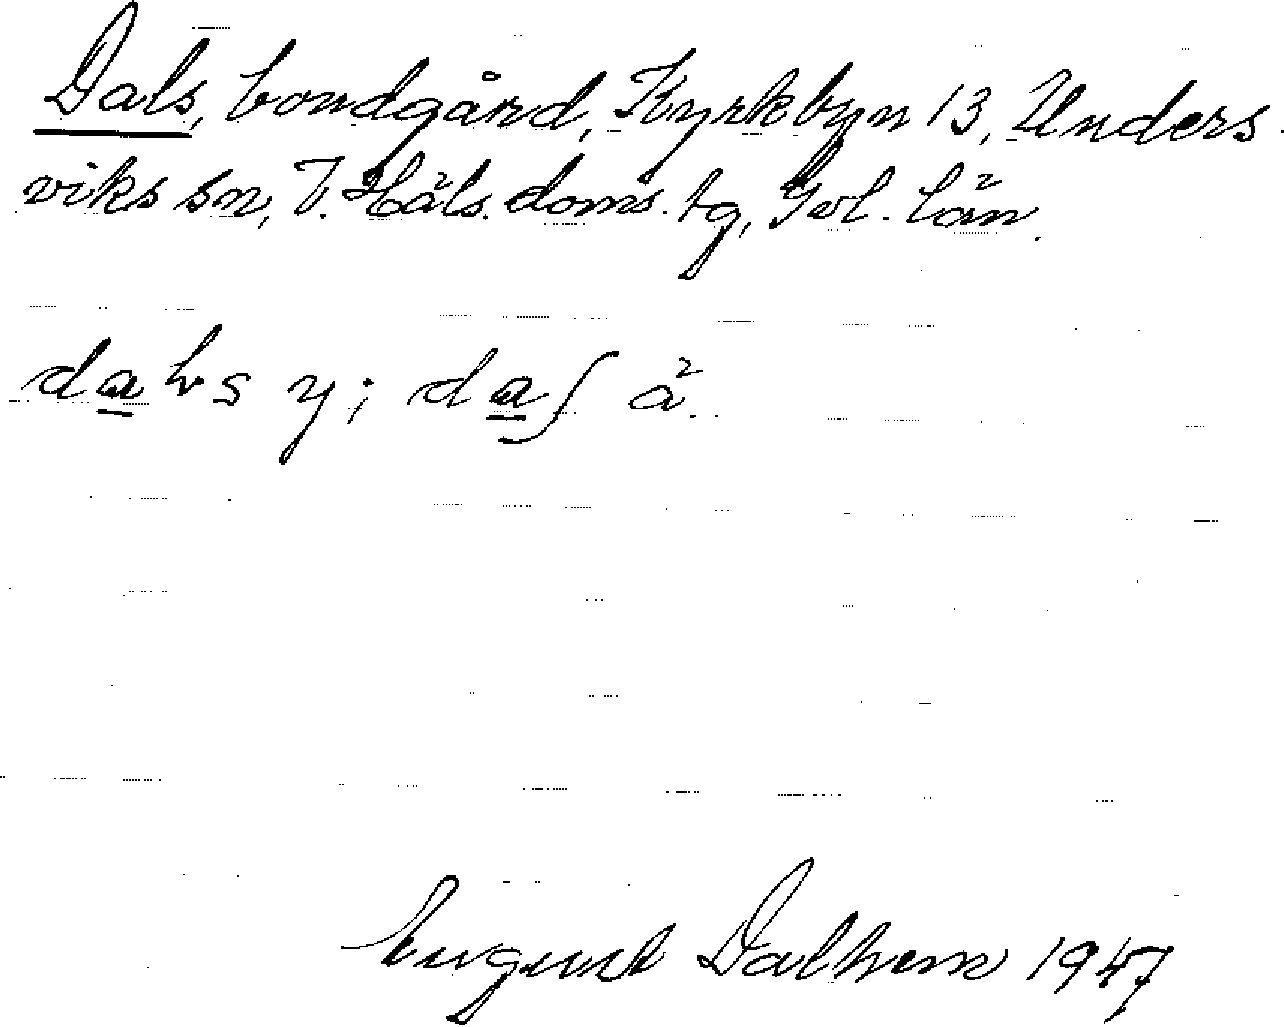 Dals, bondgård, Kyrkbyn 13, Unders-
viks sn, V. Häls. doms. tg, Gvl. län.
dals y; daʃ ä.
August Dalhem 1947